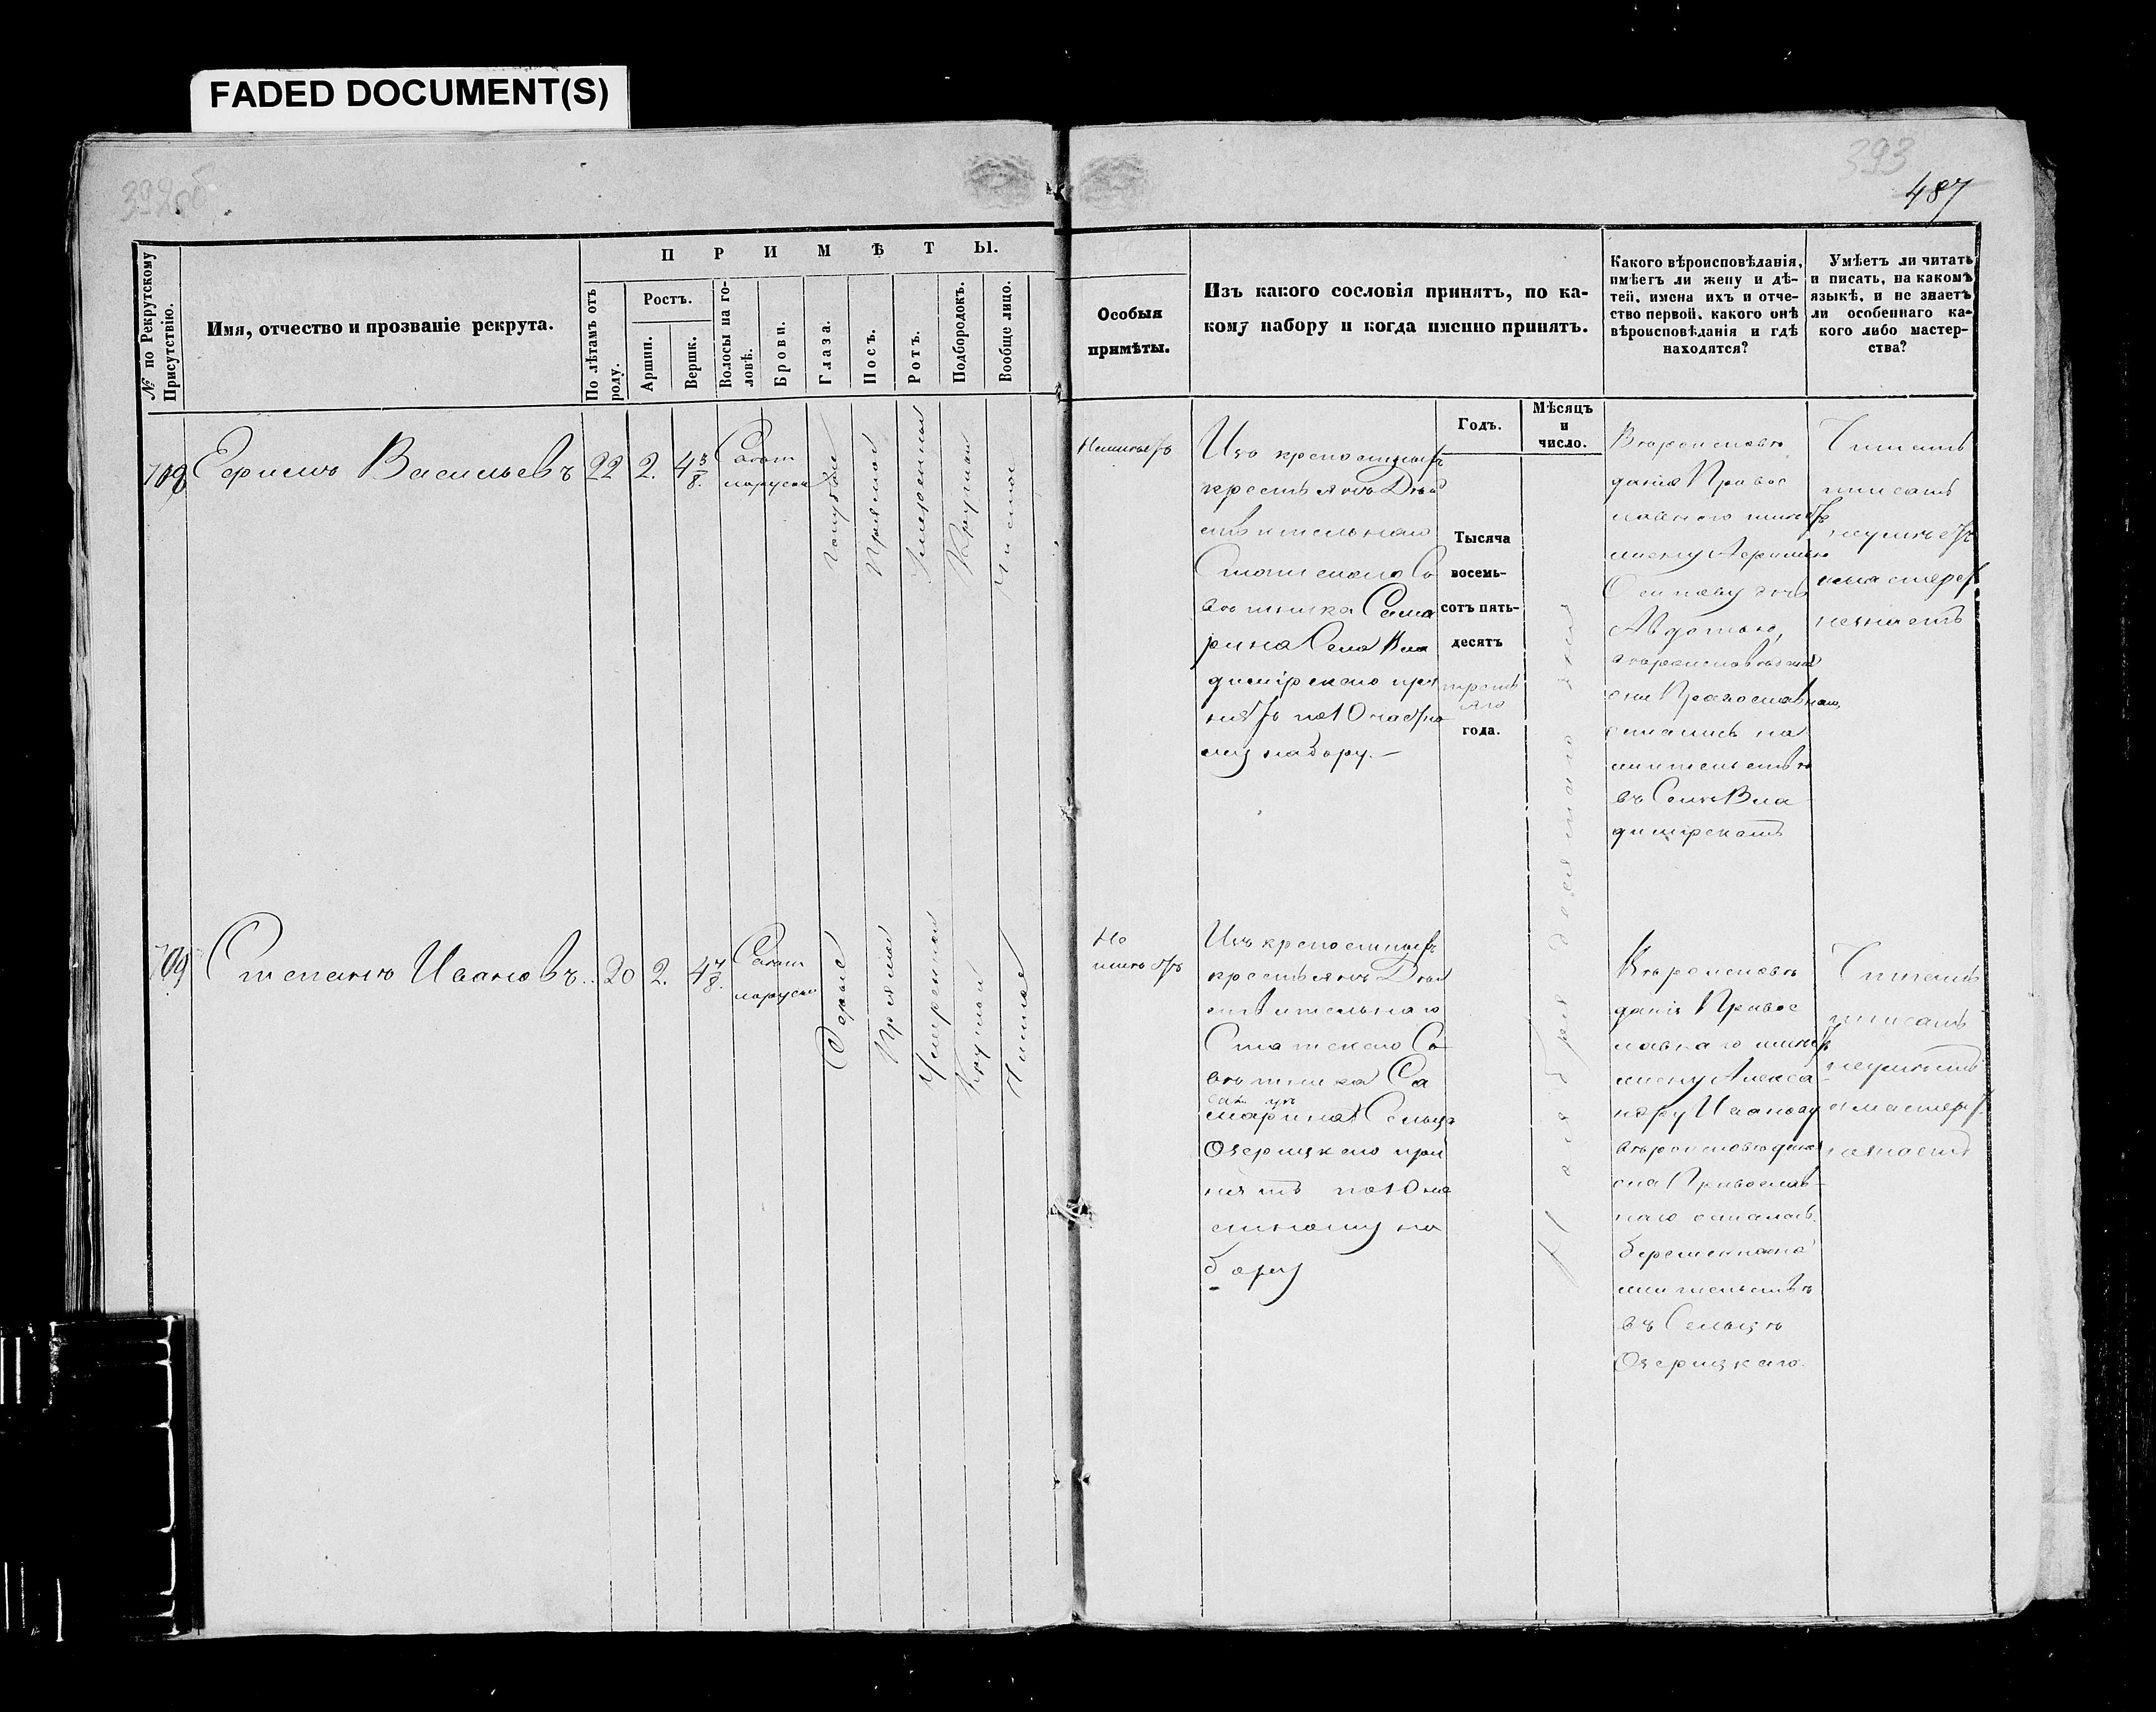 FADED DOCUMENT(S)
393
487
№ по Рекрутскому
Присутствію.
Имя, отчество и прозваніе рекрута.
ПРИМѢТЫ.
По лѣтамъ отъ
роду.
Ростъ.
Аршин.
Вершк.
Волосы на го-
ловѣ.
Брови.
Глаза.
Носъ.
Ротъ.
Подбородокъ.
Вообще лицо.
Особыя
примѣты.
Изъ какого сословія принятъ, по ка-
кому набору и когда именно принятъ.
Годъ.
Мѣсяцъ
и
число.
Какого вѣроисповѣданія,
имѣетъ ли жену и дѣ-
тей, имена ихъ и отче-
ство первой, какого онѣ
вѣроисповѣданія и гдѣ
находятся?
Умѣетъ ли читать
и писать, на какомъ
языкѣ, и не знаетъ
ли особеннаго ка-
кого либо мастер-
ства?
708
Васильевъ
22
2.
4 3/8.
Свѣт
лорусыя
голубые
Прямой
Умеренный
Круглый
Чистое
Неимѣетъ
Изъ крепостныхъ
крестьянъ Дѣй
ствительнаго
Статскаго Со
вѣтника Сама
рина Села Вла
димірскаго при
нятъ по 10 частно
му набору.
Тысяча
восемь-
сотъ пять-
десятъ
третьяго
года.
Вѣроисповѣ
данія Правос
лавнаго имѣетъ
жену
Осипову дочь
Авдотью,
вѣроисповѣданія
они Православнаго,
остались на
жительствѣ
въ Селѣ Вла
димірскомъ
Читать
писать
неумѣетъ
и мастерст
незнаетъ
709
Степанъ Ивановъ
20
2.
4 4/8.
Свѣт
лорусыя
Серые
Прямой
Умеренный
Круглый
Чистое
Не
имѣетъ
Изъ крепостныхъ
крестьянъ Дѣй
ствительнаго
Статскаго Со
вѣтника Са
марина Сельца
Озерицкаго при
нятъ по 10 ча
стному на
бору
Вѣроисповѣ
данія Правос
лавнаго имѣетъ
жену Алекса
ндру Иванову
вѣроисповѣданія
она Православ
наго осталась
беременна на
жительствѣ
въ Сельцѣ
Озерицкаго
Читать
писать
неумѣетъ
и мастерст.
незнаетъ